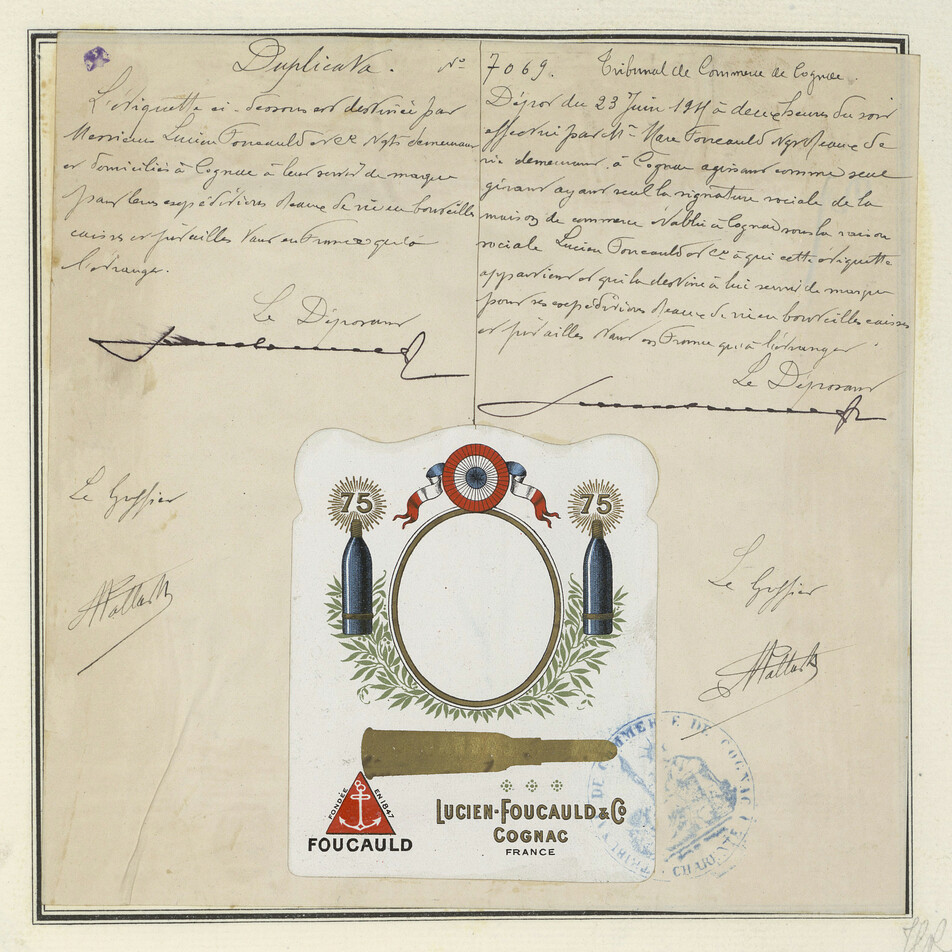 Duplicata.
L'étiquette ci-dessous est destinée par
Messieurs Lucien Foucauld et Cie Ngts demeurant
et domiciliés à Cognac à leur servir de marque
pour leurs expéditions d'eaux de vie en bouteilles
caisses et futailles tant en France qu'à
l'étranger.
Le Déposant
Le Greffier
No 7069. Tribunal de Commerce de Cognac.
Dépôt du 23 Juin à deux heures du soir
effectué par Mr Marc Foucauld Ngt d'eaux de
vie demeurant à Cognac agissant comme seul
gérant ayant seul la signature sociale de la
maison de commerce établie à Cognac sous la raison
sociale Lucien Foucauld et Cie à qui cette étiquette
appartient et qui la destine à lui servir de marque
pour ses expéditions d'eaux de vie en bouteilles caisses
et futailles tant en France qu'à l'étranger.
Le Déposant
Le Greffier
75
75
FONDÉE EN 1847
FOUCAULD
LUCIEN-FOUCAULD & Co
COGNAC
FRANCE
DE COMMERCE DE COGNAC
CHARENTE